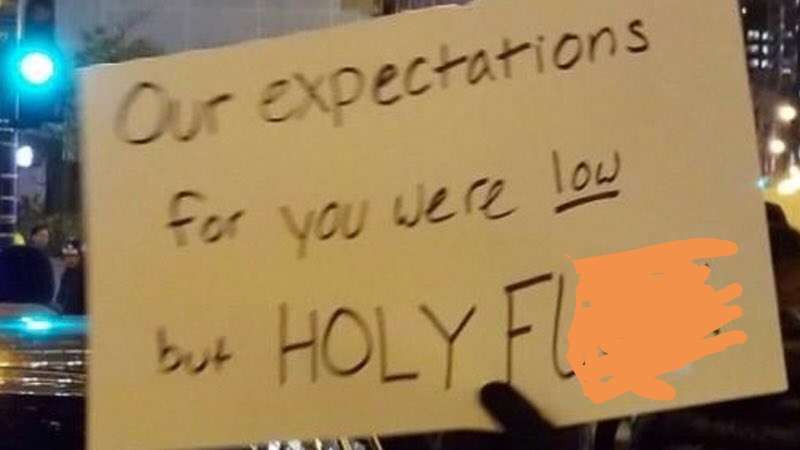 Our expectations
for you were low
but HOLY FU